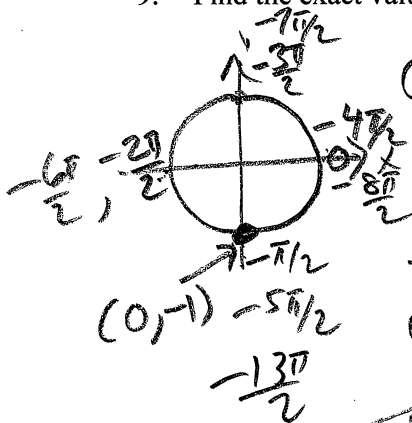 9. Find the exact val
-7π/2
-3π/2
-4π/2
0
x
-8π/2
-6π/2, -2π/2
-π/2
(0,-1) -5π/2
-13π/2